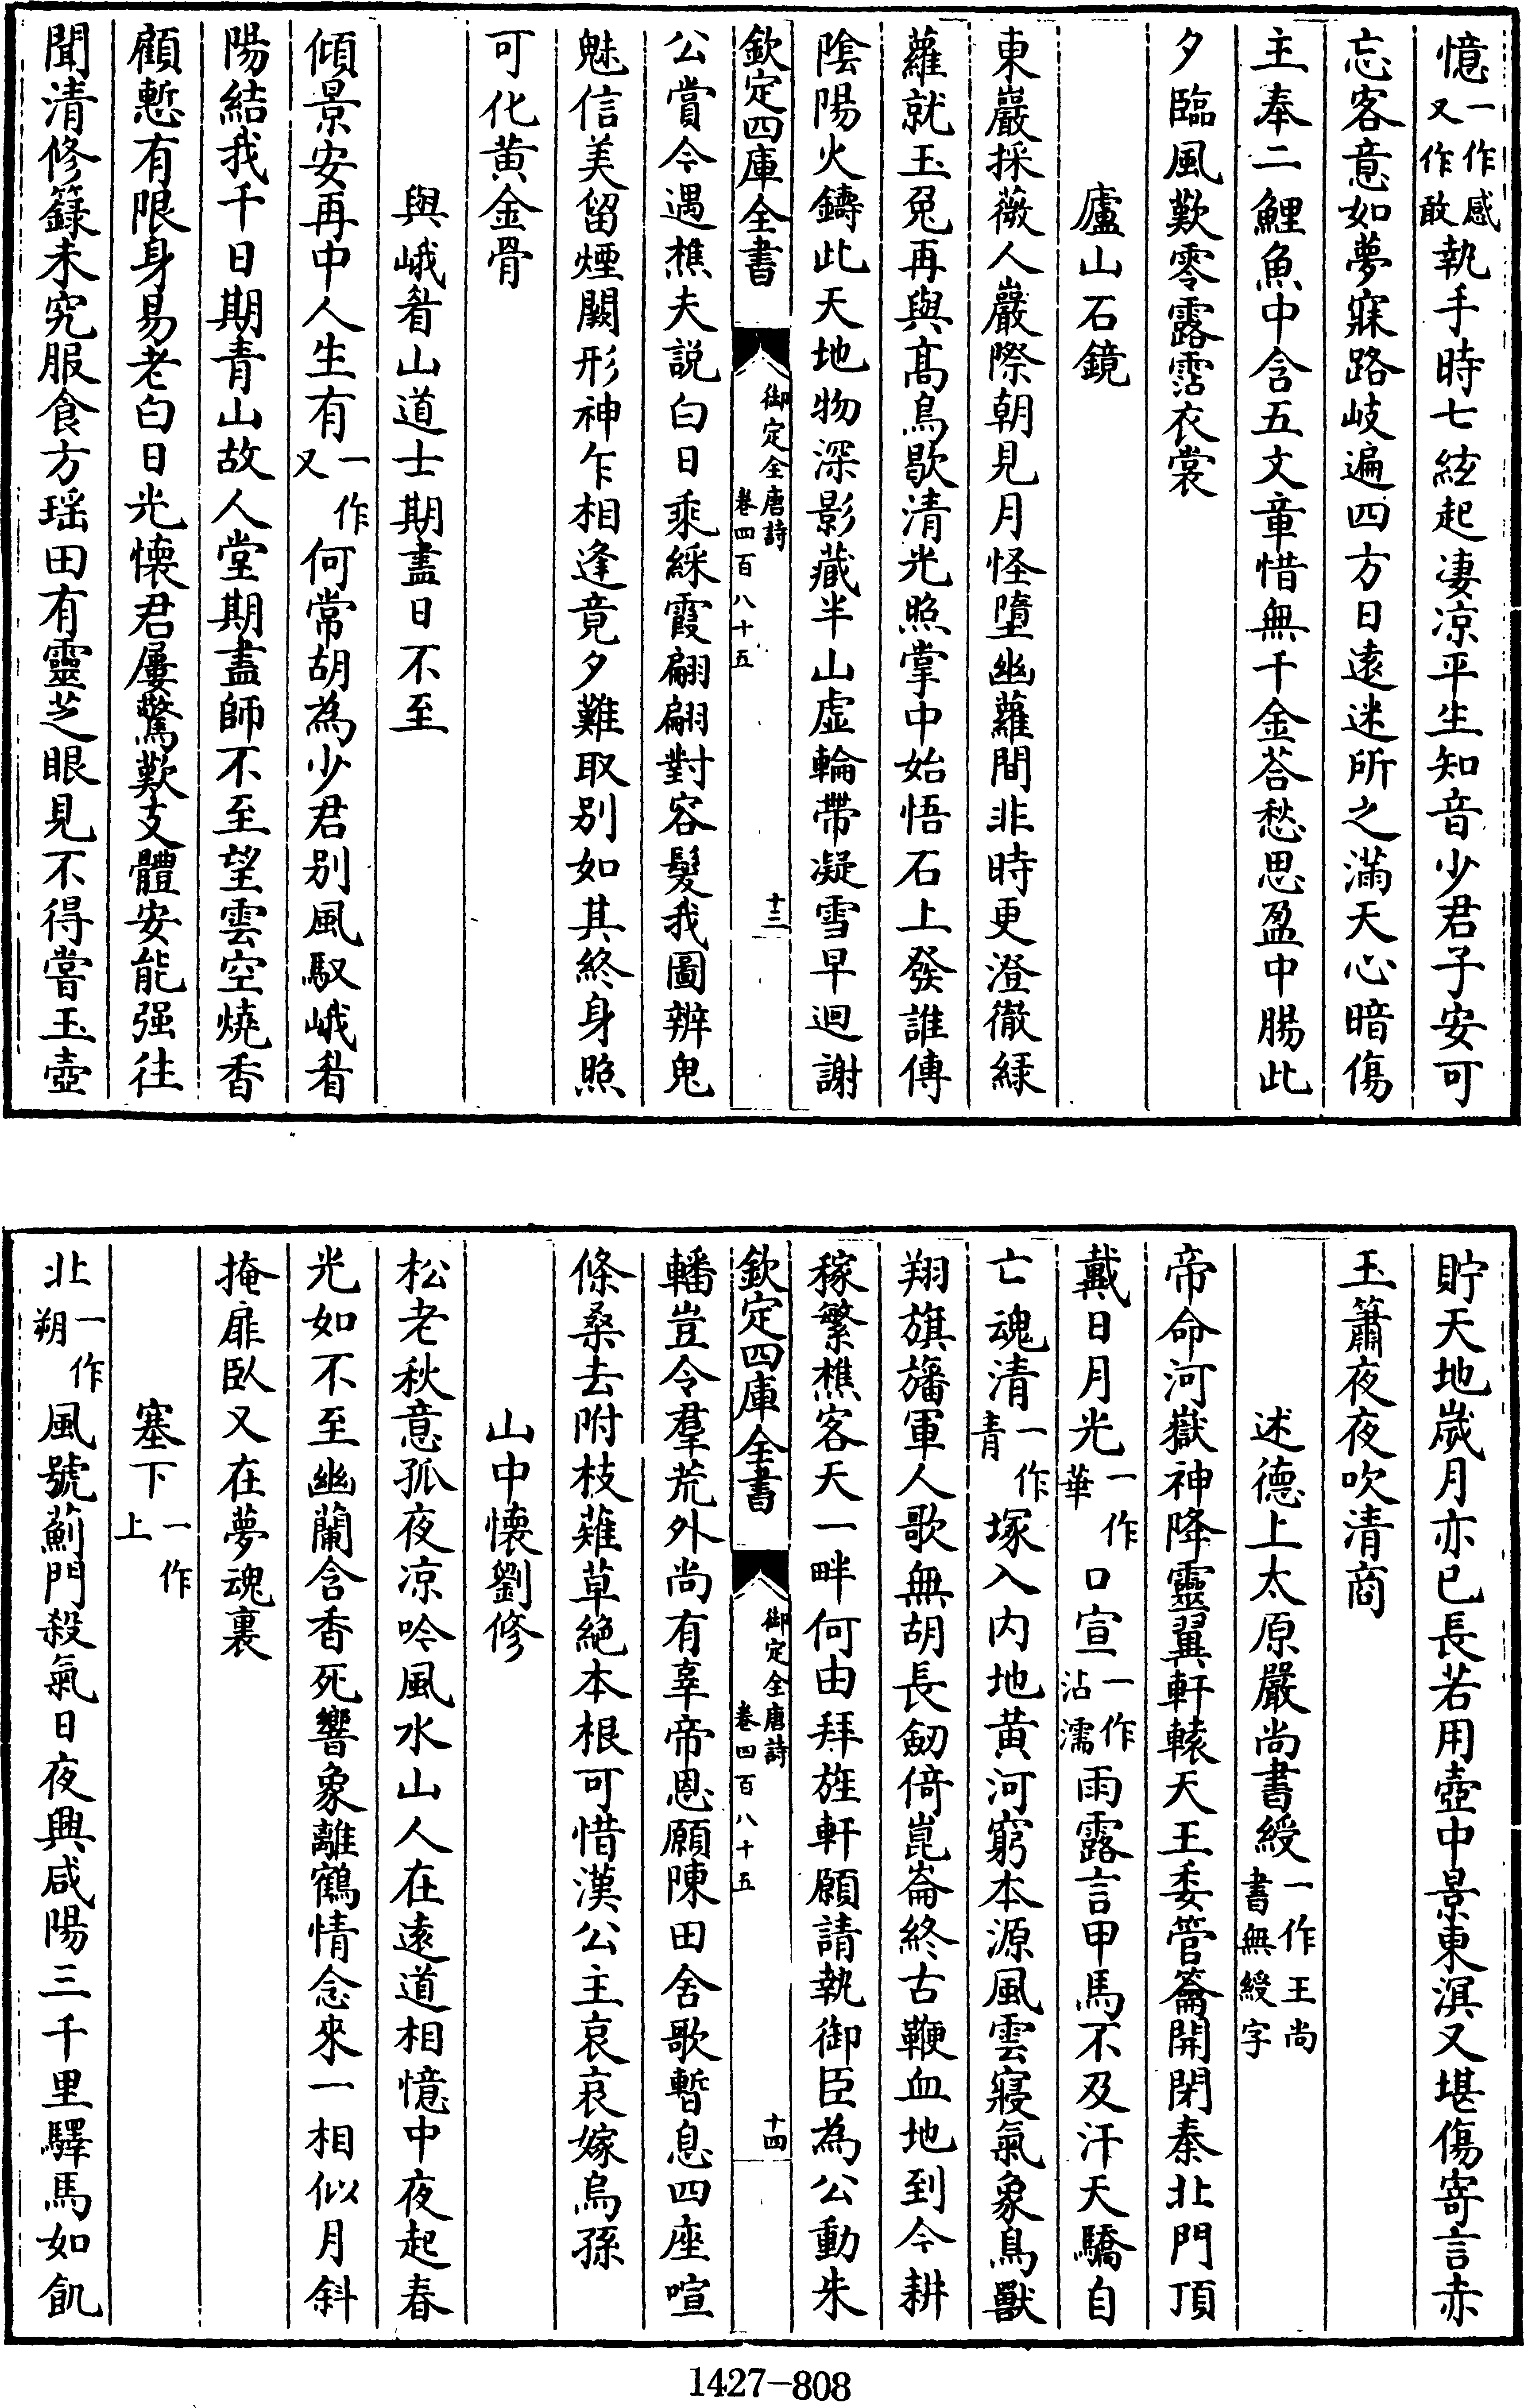 憶一作感又作敢執手時七絃起凄凉平生知音少君子安可
忘客意如夢寐路岐遍四方日遠迷所之滿天心暗傷
主奉二鯉魚中含五文章惜無千金荅愁思盈中腸此
夕臨風歎零露霑衣裳
廬山石鏡
東巖採薇人巖際朝見月怪墮幽蘿間非時更澄徹緑
蘿就玉兔再與髙鳥歇清光照掌中始悟石上發誰傳
陰陽火鑄此天地物深影藏半山虚輪帶凝雪早迴謝
欽定四庫全書
御定全唐詩
卷四百八十五
十三
公賞今遇樵夫説白日乘綵霞翩翩對容髮我圖辨鬼
魅信美留煙闕形神乍相逢竟夕難取别如其終身照
可化黄金骨
與峨眉山道士期盡日不至
傾景安再中人生有一作又何常胡為少君别風馭峨眉
陽結我千日期青山故人堂期盡師不至望雲空燒香
顧慙有限身易老白日光懐君屢驚歎支體安能强往
聞清修籙未究服食方瑶田有靈芝眼見不得嘗玉壺
貯天地歳月亦已長若用壺中景東溟又堪傷寄言赤
玉簫夜夜吹清商
述德上太原嚴尚書綬一作王尚書無綬字
帝命河嶽神降靈翼軒轅天王委管籥開閉秦北門頂
戴日月光一作華口宣一作沾濡雨露言甲馬不及汗天驕自
亡魂清一作青塚入内地黄河窮本源風雲寢氣象鳥獸
翔旗旛軍人歌無胡長劒倚崑崙終古鞭血地到今耕
稼繁樵客天一畔何由拜旌軒願請執御臣為公動朱
欽定四庫全書
御定全唐詩
卷四百八十五
十四
轓豈令羣荒外尚有辜帝恩願陳田舍歌暫息四座喧
條桑去附枝薙草絶本根可惜漢公主哀哀嫁烏孫
山中懐劉修
松老秋意孤夜凉吟風水山人在遠道相憶中夜起春
光如不至幽蘭含香死響象離鶴情念來一相似月斜
掩扉臥又在夢魂裏
塞下一作上
北一作朔風號薊門殺氣日夜興咸陽三千里驛馬如飢
1427-808